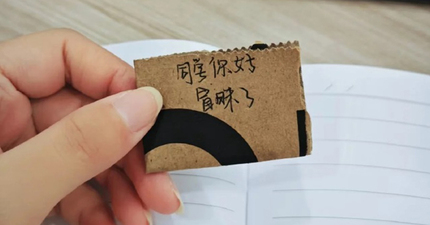 同学你好
冒昧了